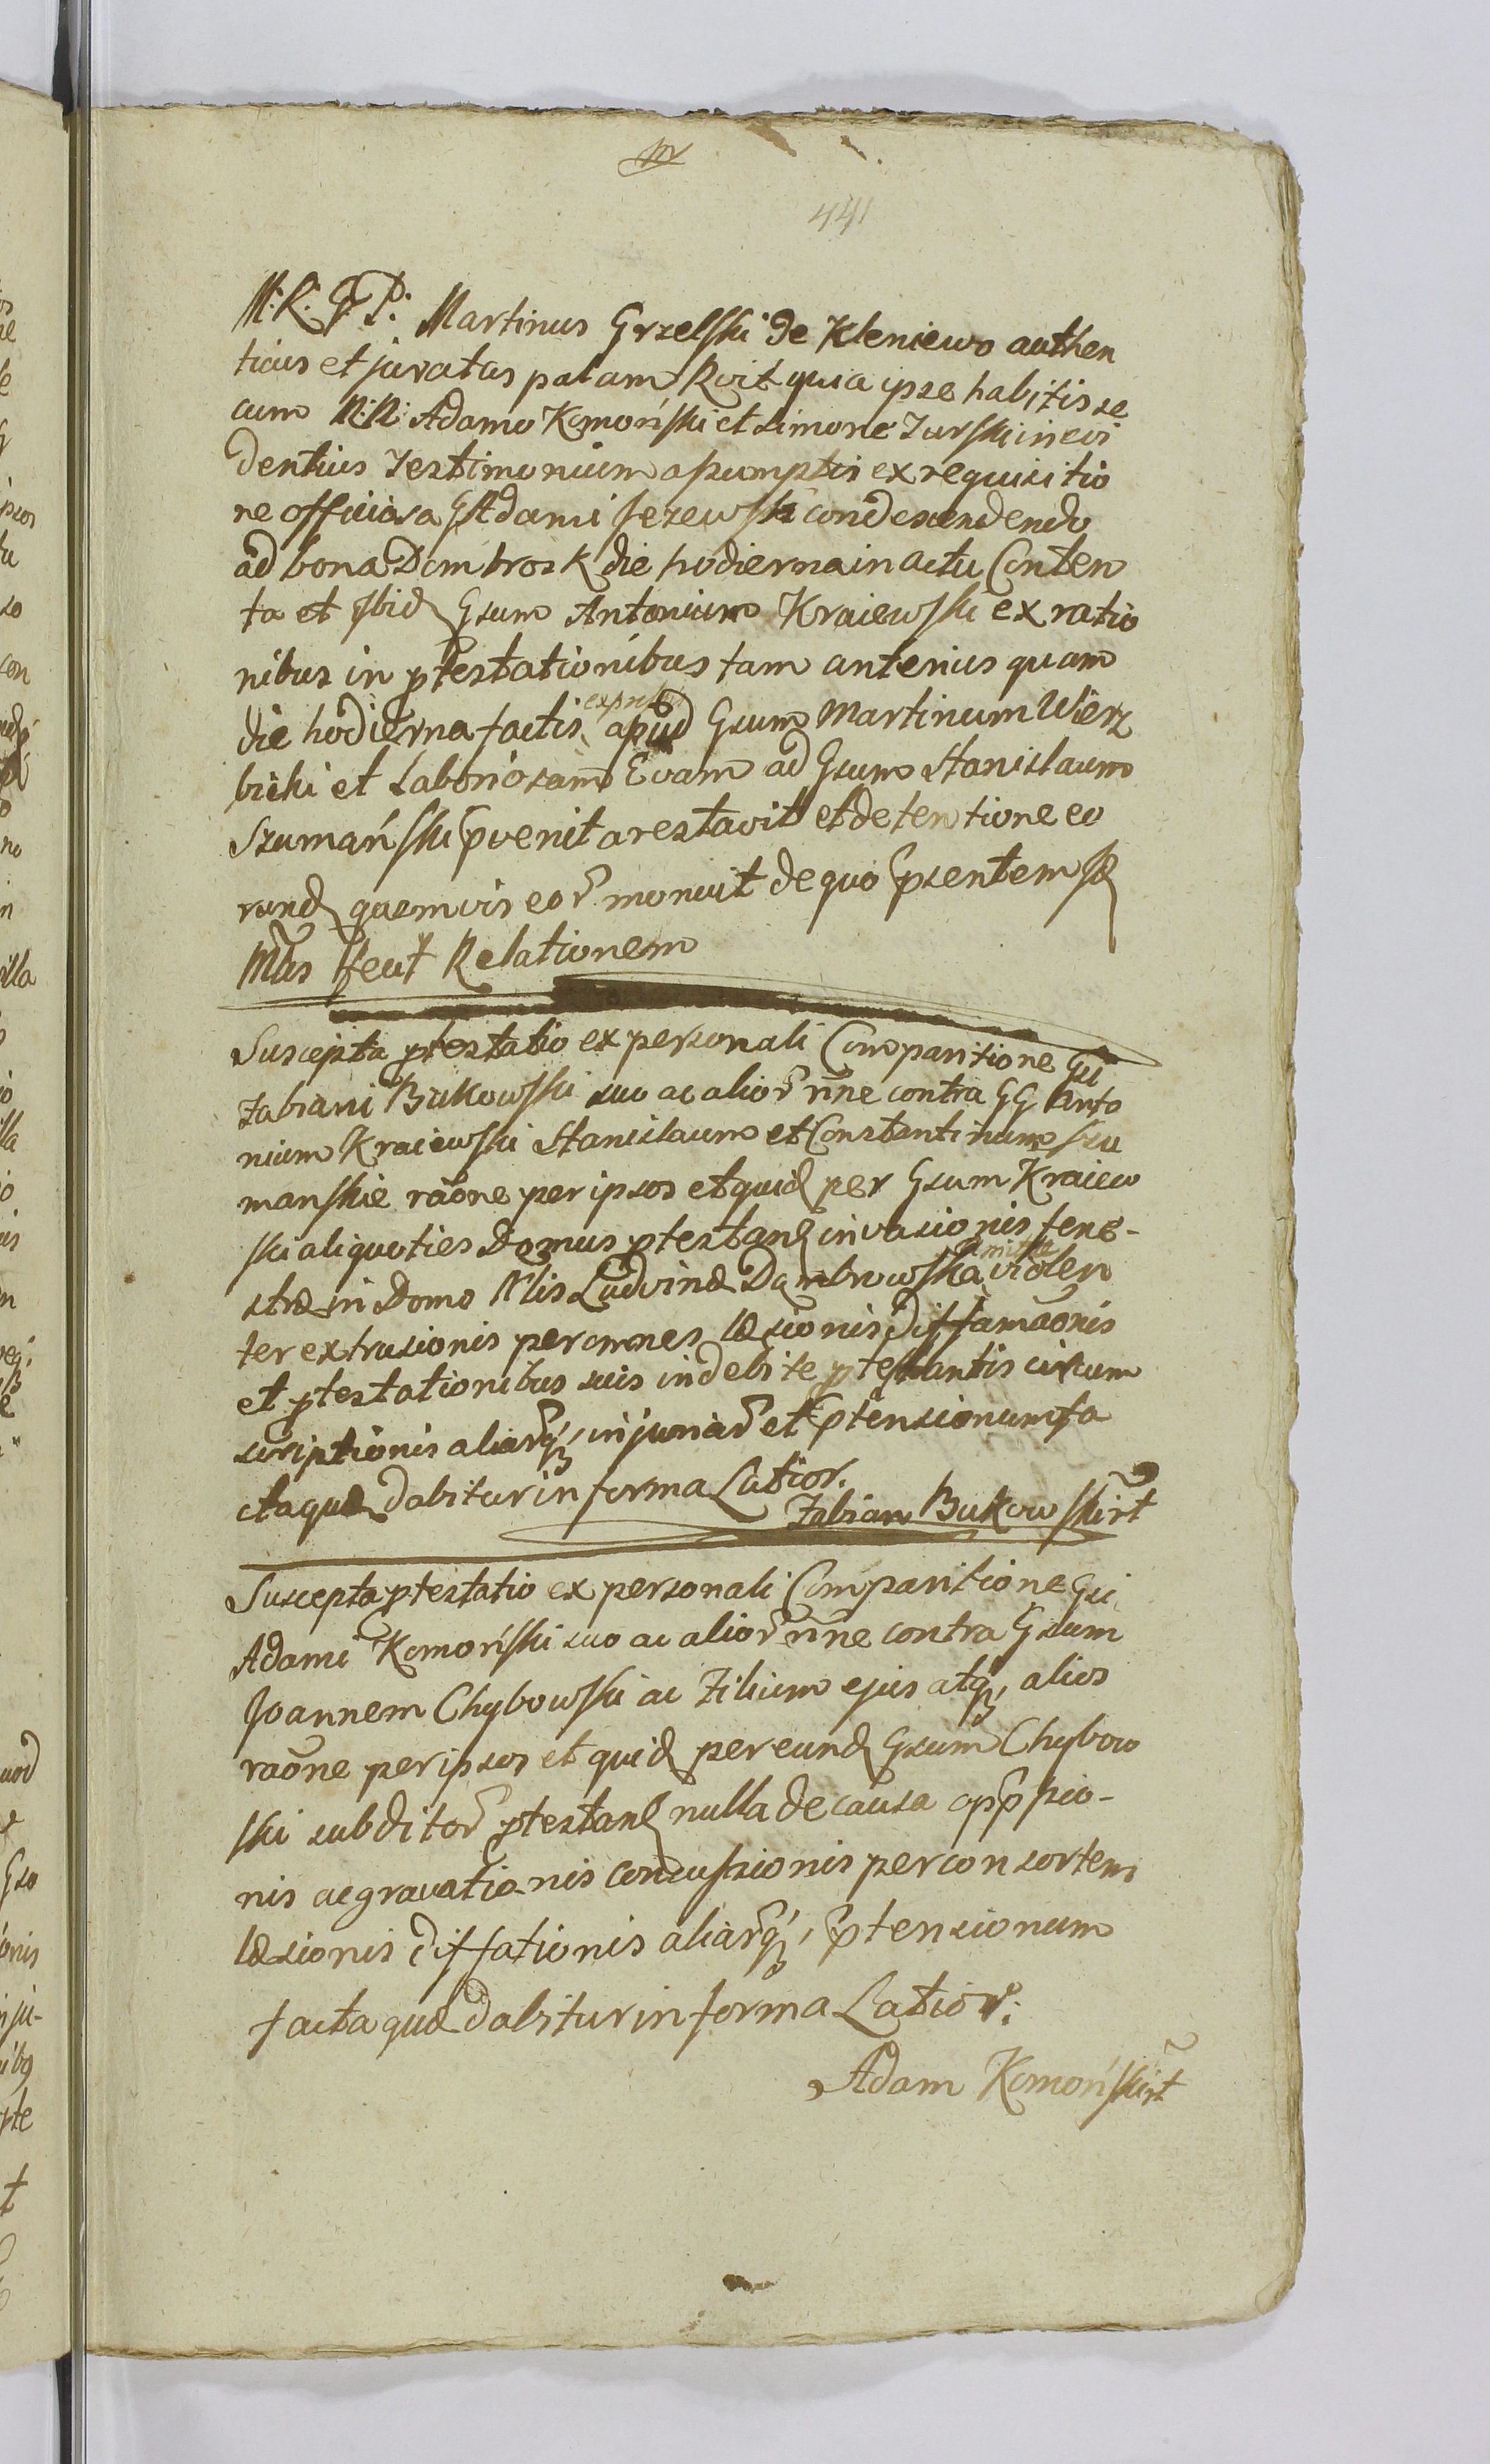 441
M: R: G: P: Martinus Grzelski de Kleniewo authen
ticus et juratus palam Rvit quia ipse habitis se
cum N:N: Adamo Komoński et Simone Turski in evi
dentius Testimonium assumptis ex requisitio
ne officiosa G Adami Jezewski condescendendo
ad bona Dombrosk die hodierna in actu Conten
ta et Ibid Gsum Antonium Kraiewski ex ratio
nibus in ptestationibus tam anterius quam
die hodierna factis apud Gsum Martinum Wierz
bicki et Laboriosam Evam ad Gsum Stanislaum
Szumański pvenit arestavit et detentione eo
rund quemvis eor monuit de quo psentem sd
Mtus fecit Relationem
Suscepta ptestatio ex personali Comparitione Gsi
Fabiani Bukowski suo ac alior nne contra GG Anto
nium Kraiewski Stanislaum et Constantinum Szu
manskie raone per ipsos et quid per Gsum Kraiew
ski aliquoties Domus ptestan invasionis fene-
stræ in Domo Nlis Ludvinæ Dambrowska violen
ter extrusionis per omnes læsionis diffamaonis
et ptestationibus suis indebite ptestantis circum
scriptionis aliarq, injuriar et ptensionum fa
cta quæ dabitur in forma Latior.
Fabian Bukowski rt
Suscepta ptestatio ex personali Comparitione Gsi
Adami Komoński suo ac alior nne contra Gsum
Joannem Chybowski ac Filium ejus atq, alios
raone per ipsos et quid per eund Gsum Chybow
ski subditor ptestan nulla de causa oppssio-
nis aggravationis concussionis per consortem
læsionis diffationis aliarq, ptensionum
facta quæ dabitur in forma Latior:
Adam Komoński rt